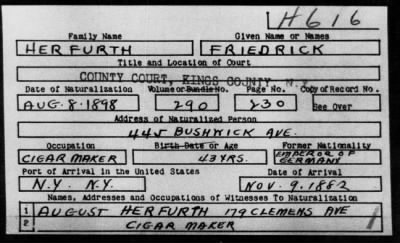 H616
Family Name Given Name or Names
HERFURTH FRIEDRICK
Title and Location of Court
COUNTY COURT, KINGS COUNTY, N.Y.
Date of Naturalization Volume or Bundle No. Page No. Copy of Record No.
AUG. 8. 1898 290 230 See Over
Address of Naturalized Person
445 BUSHWICK AVE.
Occupation Birth Date or Age Former Nationality
CIGAR MAKER 43 YRS. EMPEROR OF GERMANY
Port of Arrival in the United States Date of Arrival
N.Y. N.Y. NOV. 9. 1882
Names, Addresses and Occupations of Witnesses To Naturalization
1 AUGUST HERFURTH 179 CLEMENS AVE
2 CIGAR MAKER